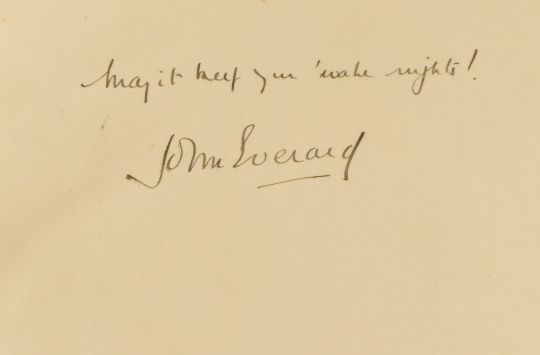 May it keep you 'wake nights!
John Everard